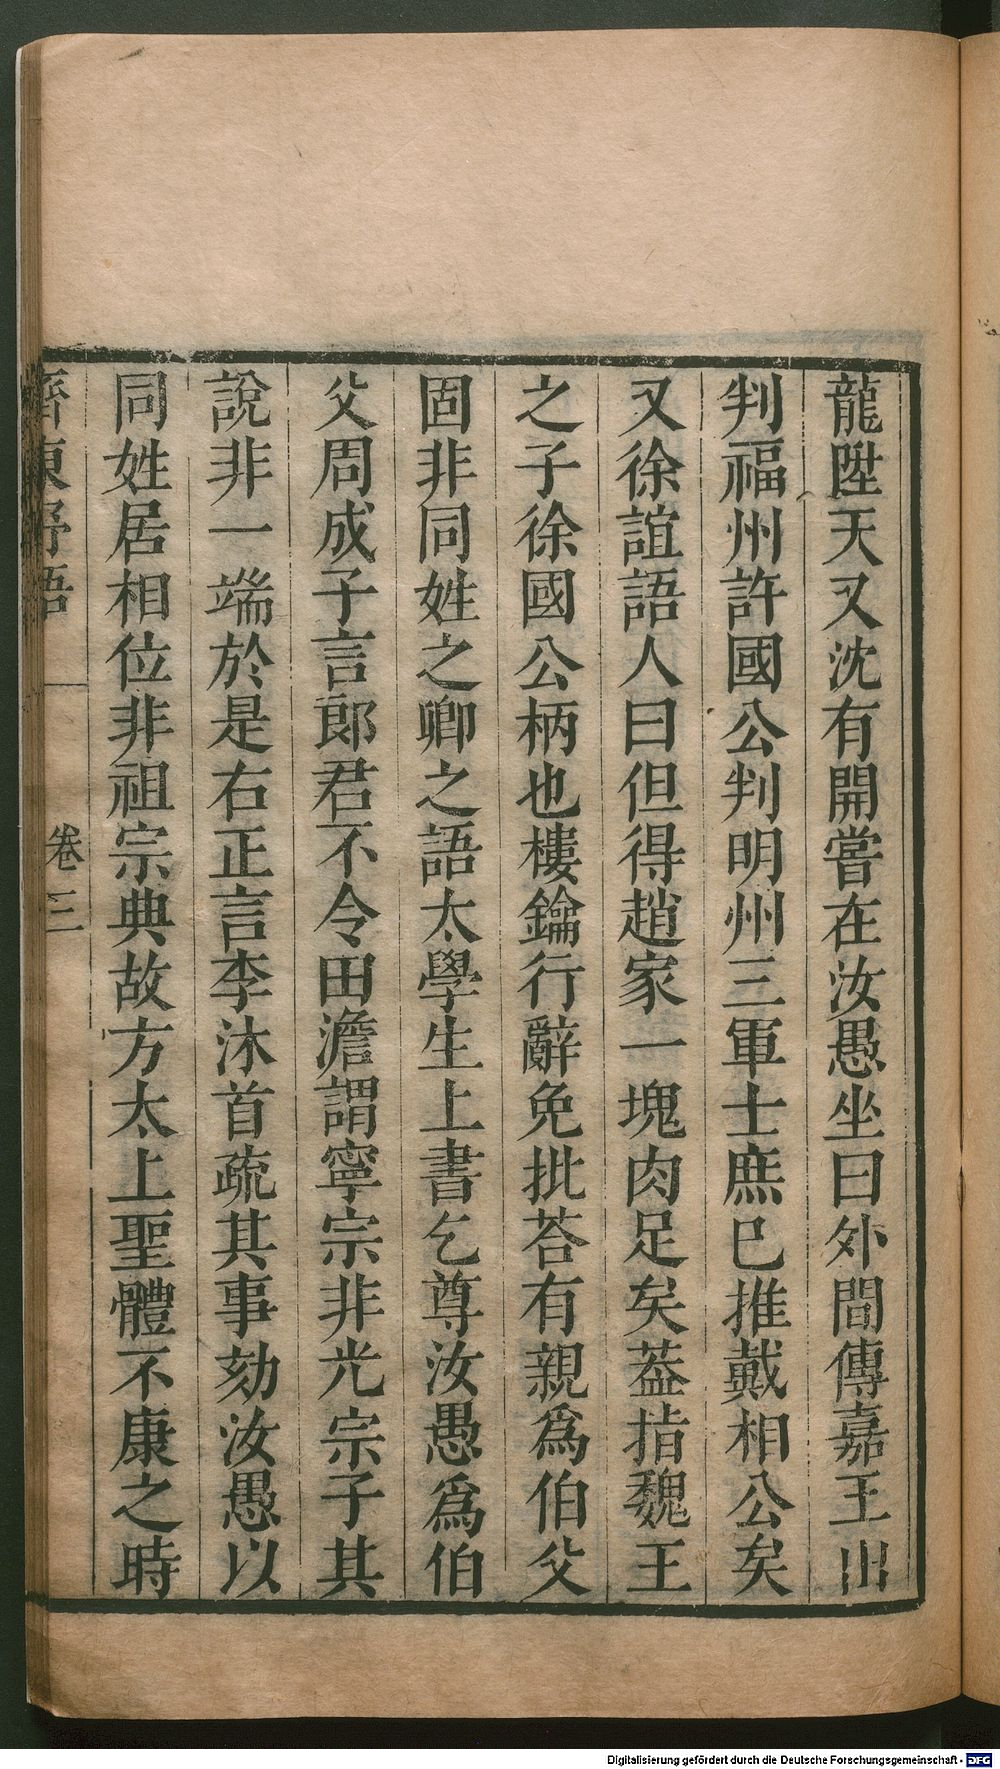 龍陞天又沈有開嘗在汝愚坐曰外間傳嘉王出
判福州許國公判明州三軍士庶已推戴相公矣
又徐誼語人曰但得趙家一塊肉足矣葢指魏王
之子徐國公柄也樓鑰行辭免批荅有親爲伯父
固非同姓之卿之語太學生上書乞尊汝愚爲伯
父周成子言郎君不令田澹謂寧宗非光宗子其
說非一端於是右正言李沐首疏其事劾汝愚以
同姓居相位非祖宗典故方太上聖體不康之時
齊東野語 卷三
Digitalisierung gefördert durch die Deutsche Forschungsgemeinschaft - DFG